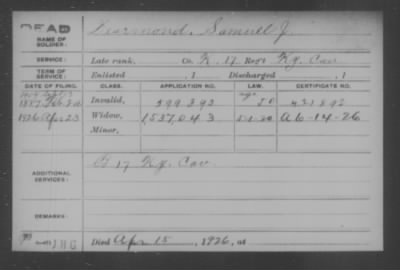 DEAD
NAME OF SOLDIER: Dearmond, Samuel J.
SERVICE: Late rank, Co. K, 17 Reg't Ky. Cav
TERM OF SERVICE: Enlisted , 1 Discharged , 1
DATE OF FILING. CLASS. APPLICATION NO. LAW. CERTIFICATE NO.
1887 Feb Invalid, 599.392 age
1926 Apr. 23 Widow, 1537,043 A6-14-26
Minor,
ADDITIONAL SERVICES: B 17 Ky. Cav
REMARKS:
Died Apr 15, 1926, at